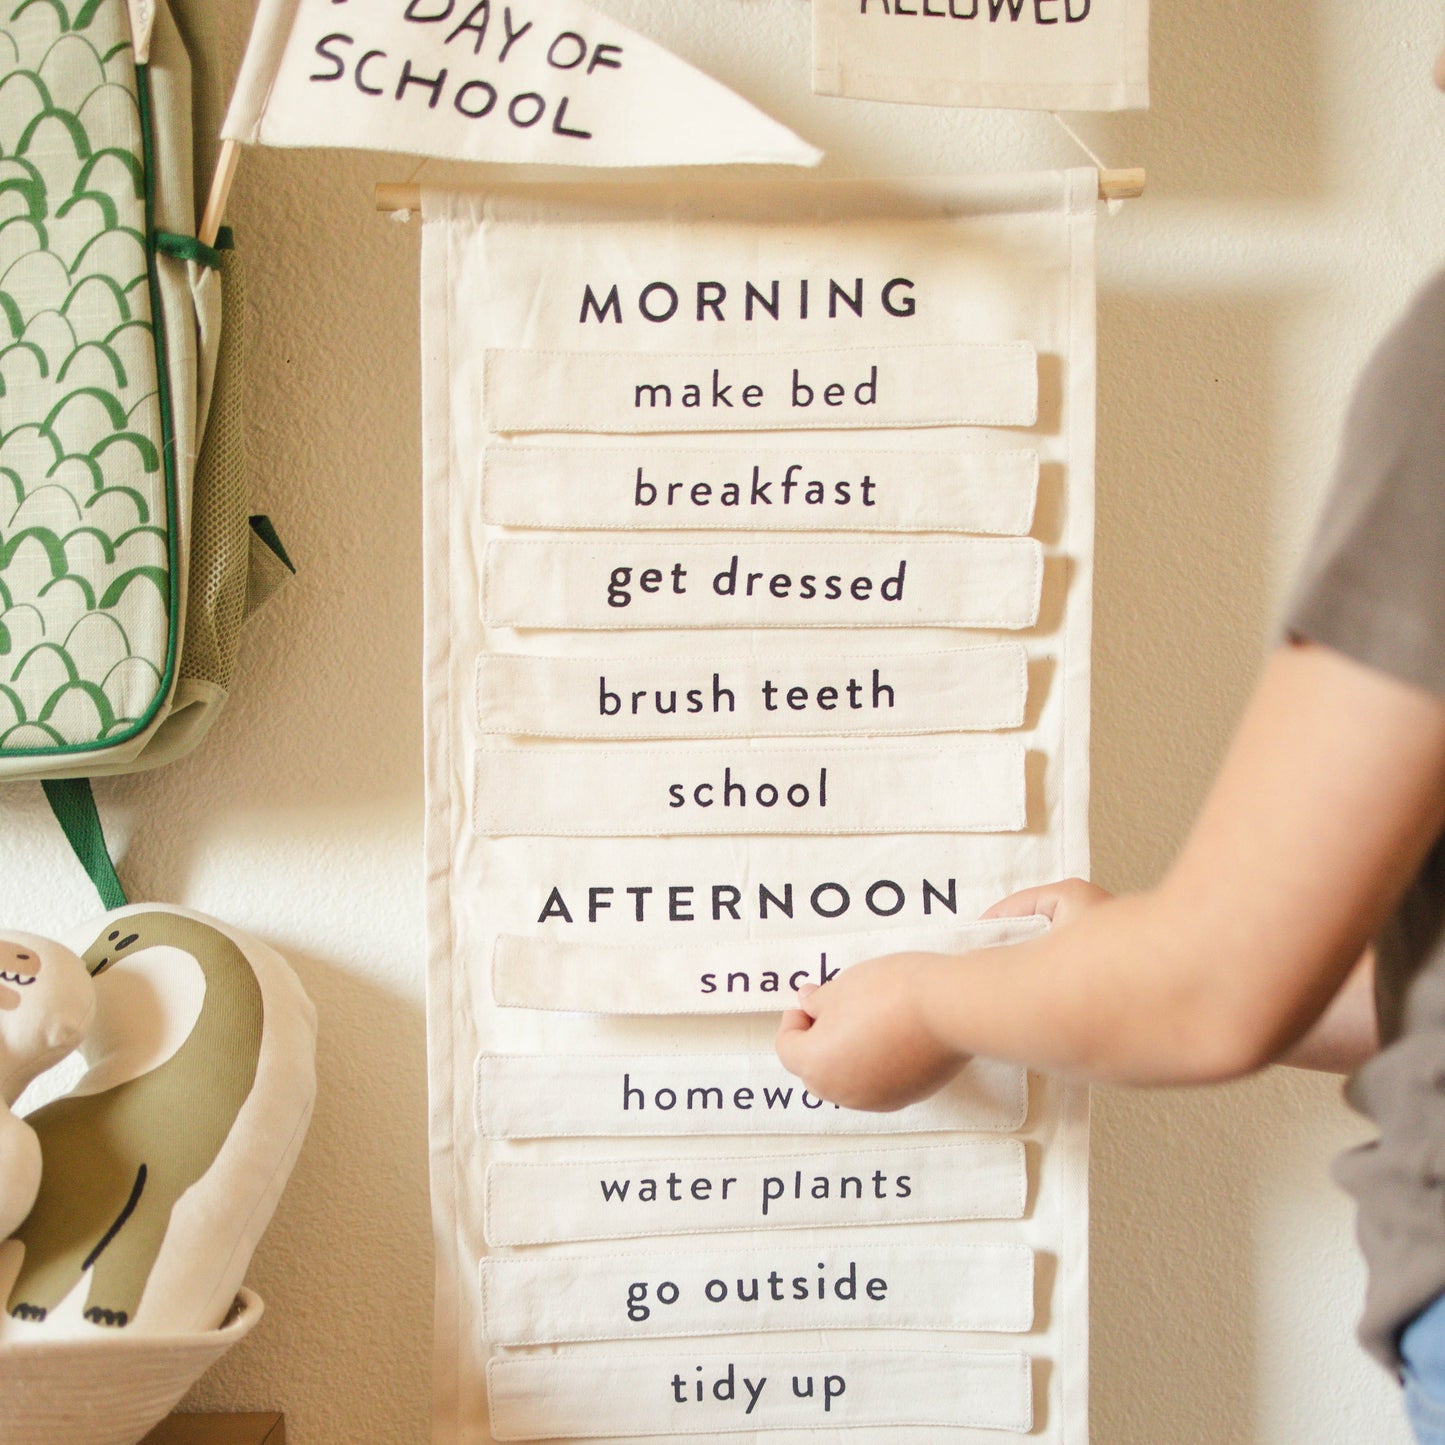 DAY OF
SCHOOL
ALLOWED
MORNING
make bed
breakfast
get dressed
brush teeth
school
AFTERNOON
snack
water plants
go outside
tidy up